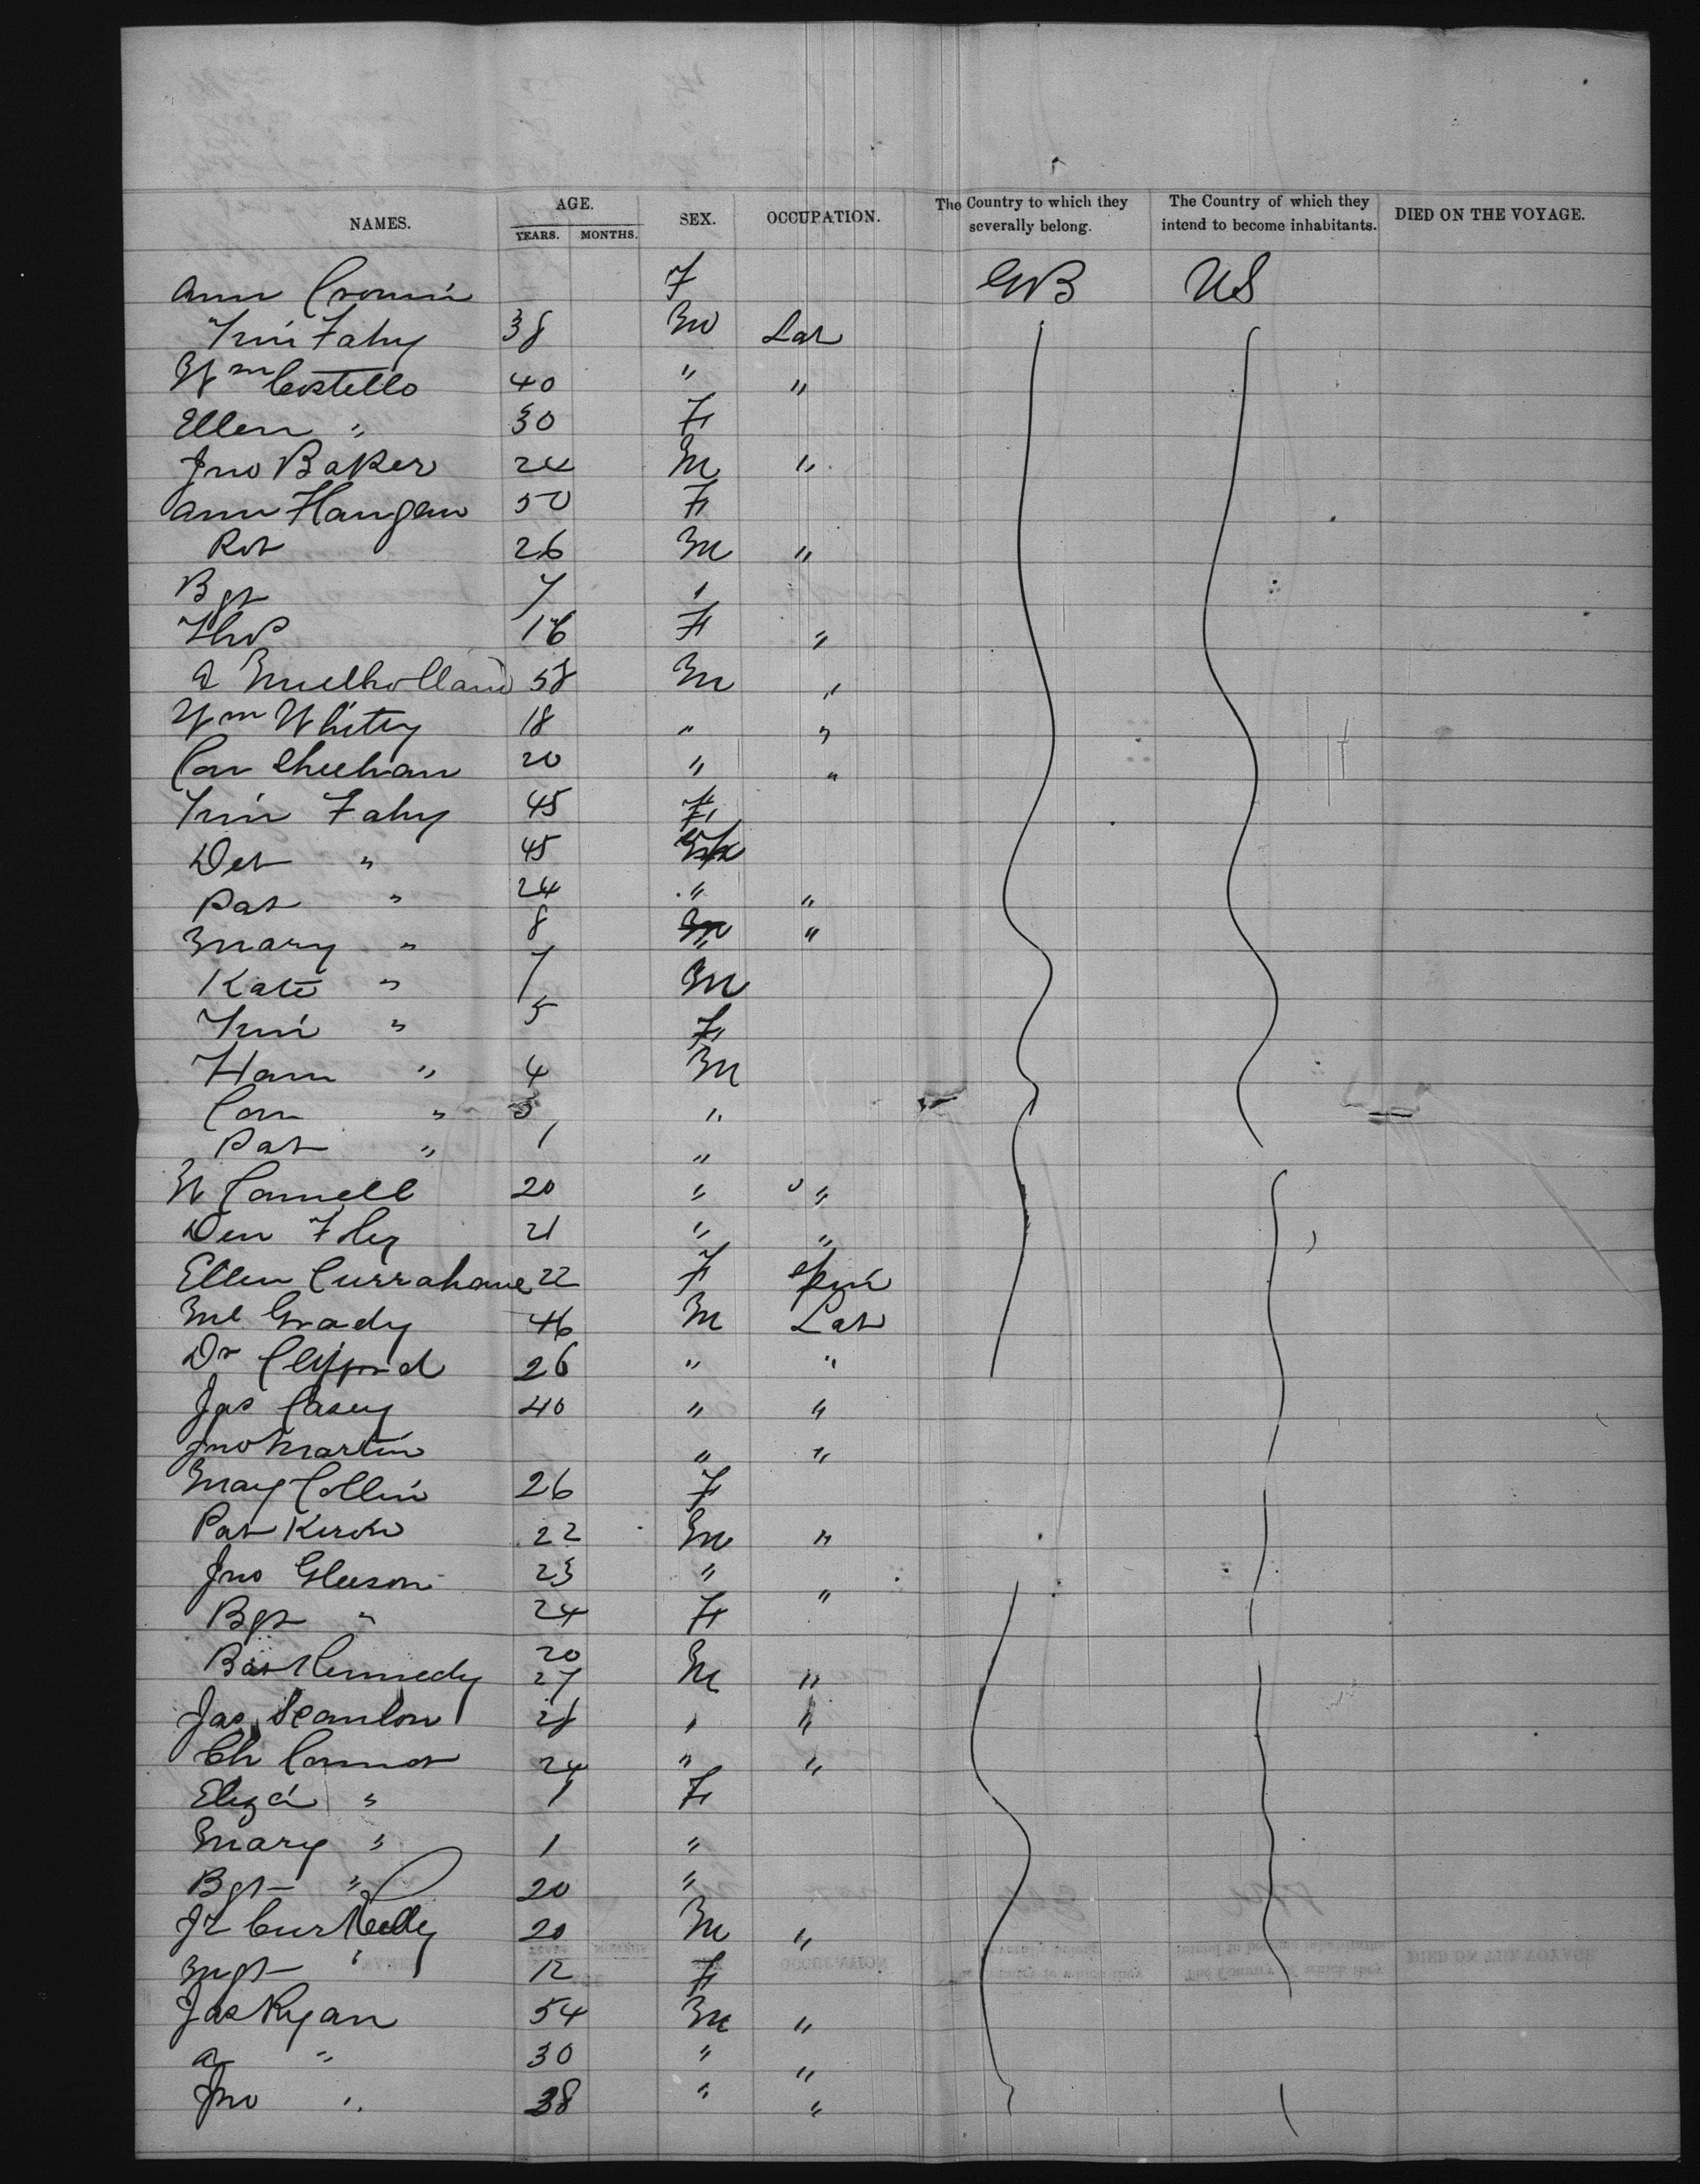 NAMES. AGE. YEARS. MONTHS. SEX. OCCUPATION. The Country to which they severally belong. The Country of which they intend to become inhabitants. DIED ON THE VOYAGE.
Ann Cronin F GB US
Tim Fahy 38 M Lab
Wm Costello 40 " "
Ellen " 30 F
Jno Baker 24 M "
Ann Flangan 50 F
Rob 26 M "
Bgt 7 "
Thos 16 F "
A Mullholland 58 M "
Wm Whitey 18 " "
Con Sheehan 20 " "
Tim Fahy 45 F
Deb " 45
Pat " 24 " "
Mary " 8 "
Kate " 7 M
Tim " 5 F
Hann " 4 M
Con " 3 "
Pat " 1 "
W Connell 20 " "
Den Foley 21 " "
Ellen Currahane 22 F Spin
Ml Grady 46 M Lab
Dr Clifford 26 " "
Jas Casey 40 " "
Jno Martin " "
Mary Collin 26 F
Pat Kirwin 22 M "
Jno Gleeson 23 " "
Bgt " 24 F
Kennedy 20 27 M "
Jas Scanlon 28 " "
Ch Connor 24 " "
Eliza " 1 F
Mary " 1 "
Bgt " 20 "
Kelly 20 M "
Mgt " 12 F
Jas Ryan 54 M "
A " 30 " "
Jno " 38 " "